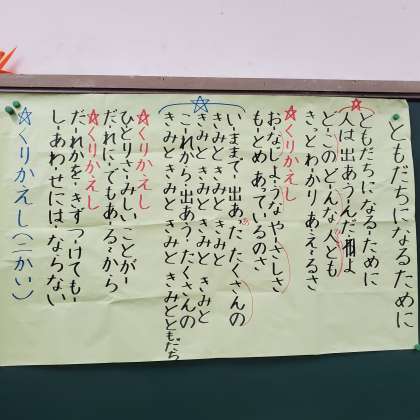 ともだちになるために
☆ともだちになるために
人は出あうんだよ
どこのどんな人とも
きっとわかりあえるさ
☆くりかえし
おなじようなやさしさ
もとめあっているのさ
☆
いままで出あったたくさんの
きみときみときみと
きみときみときみときみと
これから出あうたくさんの
きみときみときみときみとともだち
☆くりかえし
ひとりさみしいことが
だれにでもあるから
☆くりかえし
だれかをきずつけても
しあわせにはならない
☆くりかえし(こかい)